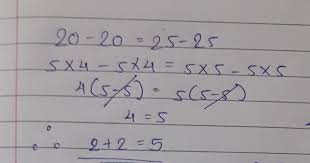 20 - 20 = 25 - 25
5×4 - 5×4 = 5×5 - 5×5
4(5-5) = 5(5-5)
4 = 5
∴ 2+2 = 5